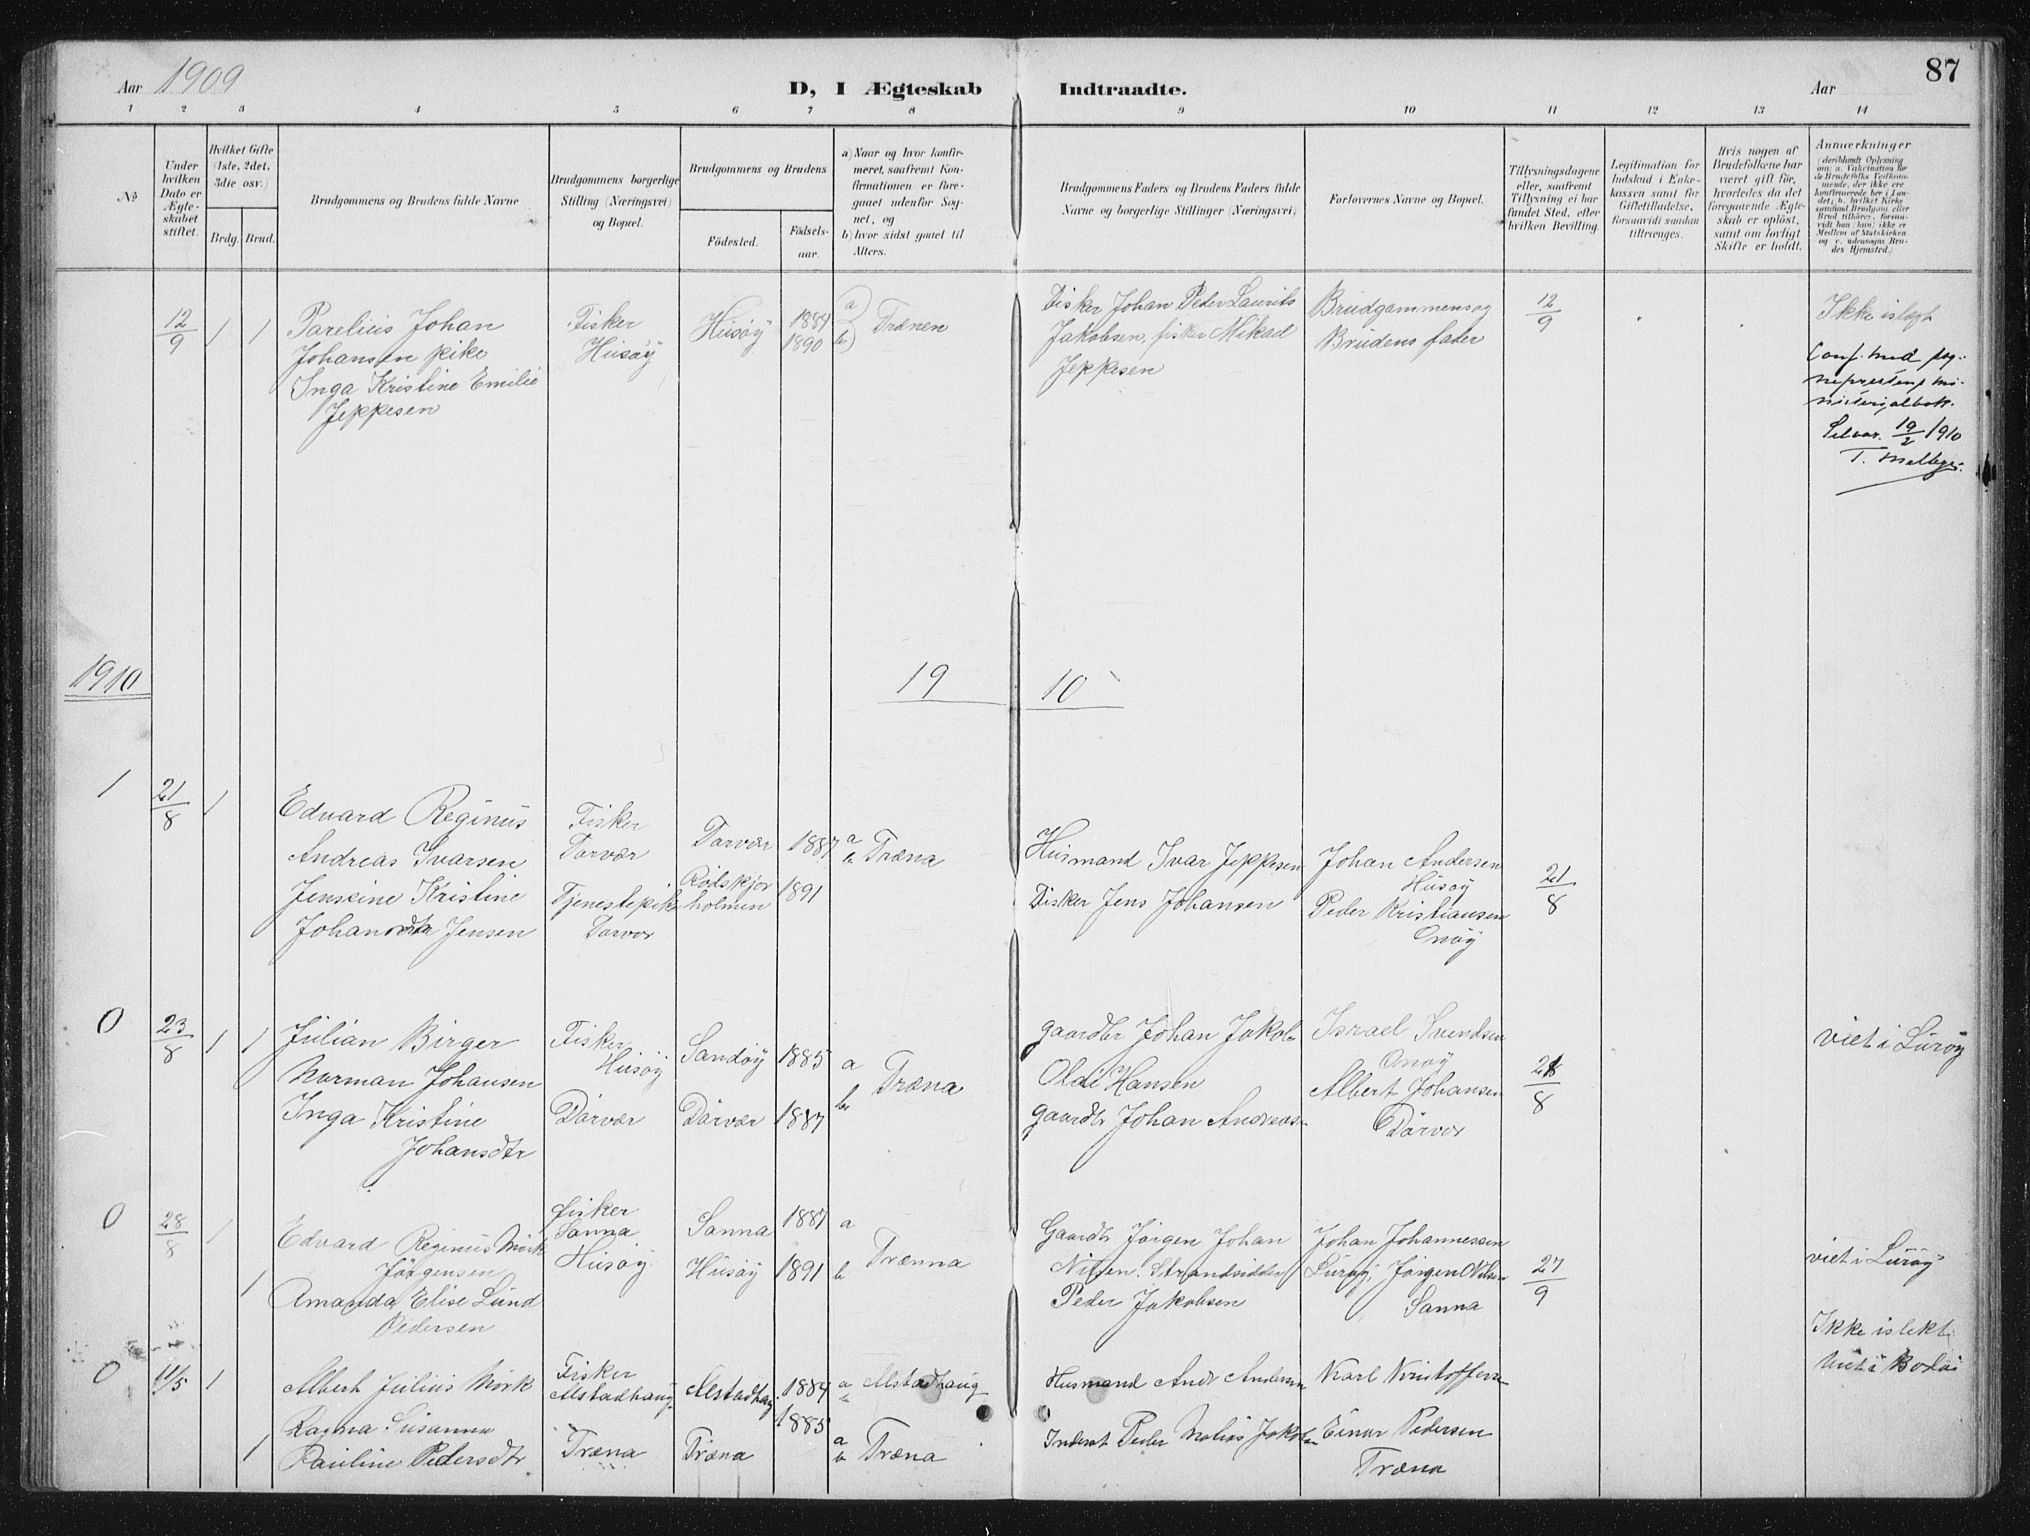 Aar 1909
D, I Ægteskab Indtraadte.
Aar
87
1 2 3 4 5 6 7 8 9 10 11 12 13 14
No
Under hvilken Dato er Ægteskabet stiftet.
Hvilket Gifte (1ste, 2det, 3die osv.)
Brdg. Brud.
Brudgommens og Brudens fulde Navne
Brudgommens borgerlige Stilling (Næringsvei) og Bopæl.
Brudgommens og Brudens
Fødested.
Fødselsaar.
a) Naar og hvor konfirmeret, saafremt Konfirmationen er foregaaet udenfor Sognet, og
b) hvor sidst gaaet til Alters.
Brudgommens Faders og Brudens Faders fulde Navne og borgerlige Stillinger (Næringsvei)
Forlovernes Navne og Bopæl.
Tillysningsdagene eller, saafremt Tillysning ei har fundet Sted, efter hvilken Bevilling.
Legitimation for Indskud i Enkekassen samt for Giftetilladelse, forsaavidt saadan tiltrænges.
Hvis nogen af Brudefolkene har været gift før, hvorledes da det foregaaende Ægteskab er opløst, samt om lovligt Skifte er holdt.
Anmærkninger
(deriblandt Oplysning om: a. Vakcination for de Brudefolks Vedkommende, der ikke ere konfirmerede her i Landet; b. hvilket Kirkesamfund Brudgom eller Brud tilhører, forsaavidt han (hun) ikke er Medlem af Statskirken og c. udensogns Brudes Hjemsted.)
12/9 1 1
Parelius Johan
Johansen pike
Inga Kristine Emilie
Jeppesen
Fisker
Husøy
Husøy
1884
1890
a)
b) Trænen
Fisker Johan Peder Laurits
Jakobsen, fisker Mikael
Jeppesen
Brudgammens og
Brudens fader
12/9
Ikke i slegt
Conf. med sog-
neprestens mi-
nisterialbok.
Selvær 19/2 1910
1910
19 10
1 21/8 1
Edvard Reginus
Andreas Ivarsen
Jensine Kristine
Johan Jensen
Fisker
Dorvær
Tjenestepike
Dorvær
Dorvær
Rødskjærholmen
1887
1891
a
b Træna
Husmand Ivar Jeppesen
Fisker Jens Johansen
Johan Andersen
Husøy
Peder Kristiansen
Onøy
21/8
0 23/8 1 1
Julian Birger
Norman Johansen
Inga Kristine
Johansdtr
Fisker
Husøy
Dørvær
Sandøy
Dørvær
1885
1887
a
b Træna
gaardbr Johan Jakob
Oldi Hansen
gaardbr Johan Andreas
Israel Svendsen
Onøy
Albert Johansen
Dørvær
viet i Lurøy
0 28/8 1
1
Edvard Reginus Mørk
Jørgensen
Amanda Elise Lund
Pedersen
fisker
Sanna
Husøy
Sanna
Husøy
1887
1891
a
b Trænna
Gaardbr Jørgen Johan
Nilsen. Strandsidder
Peder Jakobsen
Johan Johannessen
Lurøy, Jørgen Nilsen
Sanna
27/9
viet i Lurøy
0 11/5 1
1
Albert Julius Mørk
Ragna Susanna
Pauline Pedersdtr
Fisker
Alstadhaug
Træna
Alstadhaug
Træna
1884
1885
a
b Alstadhaug
a
b Træna
Husmand Andr Andersen
Inderst Peder Jakobsen
Karl Kristoffersen
Einar Pedersen
Træna
Ikke i slekt
Viet i Bodø